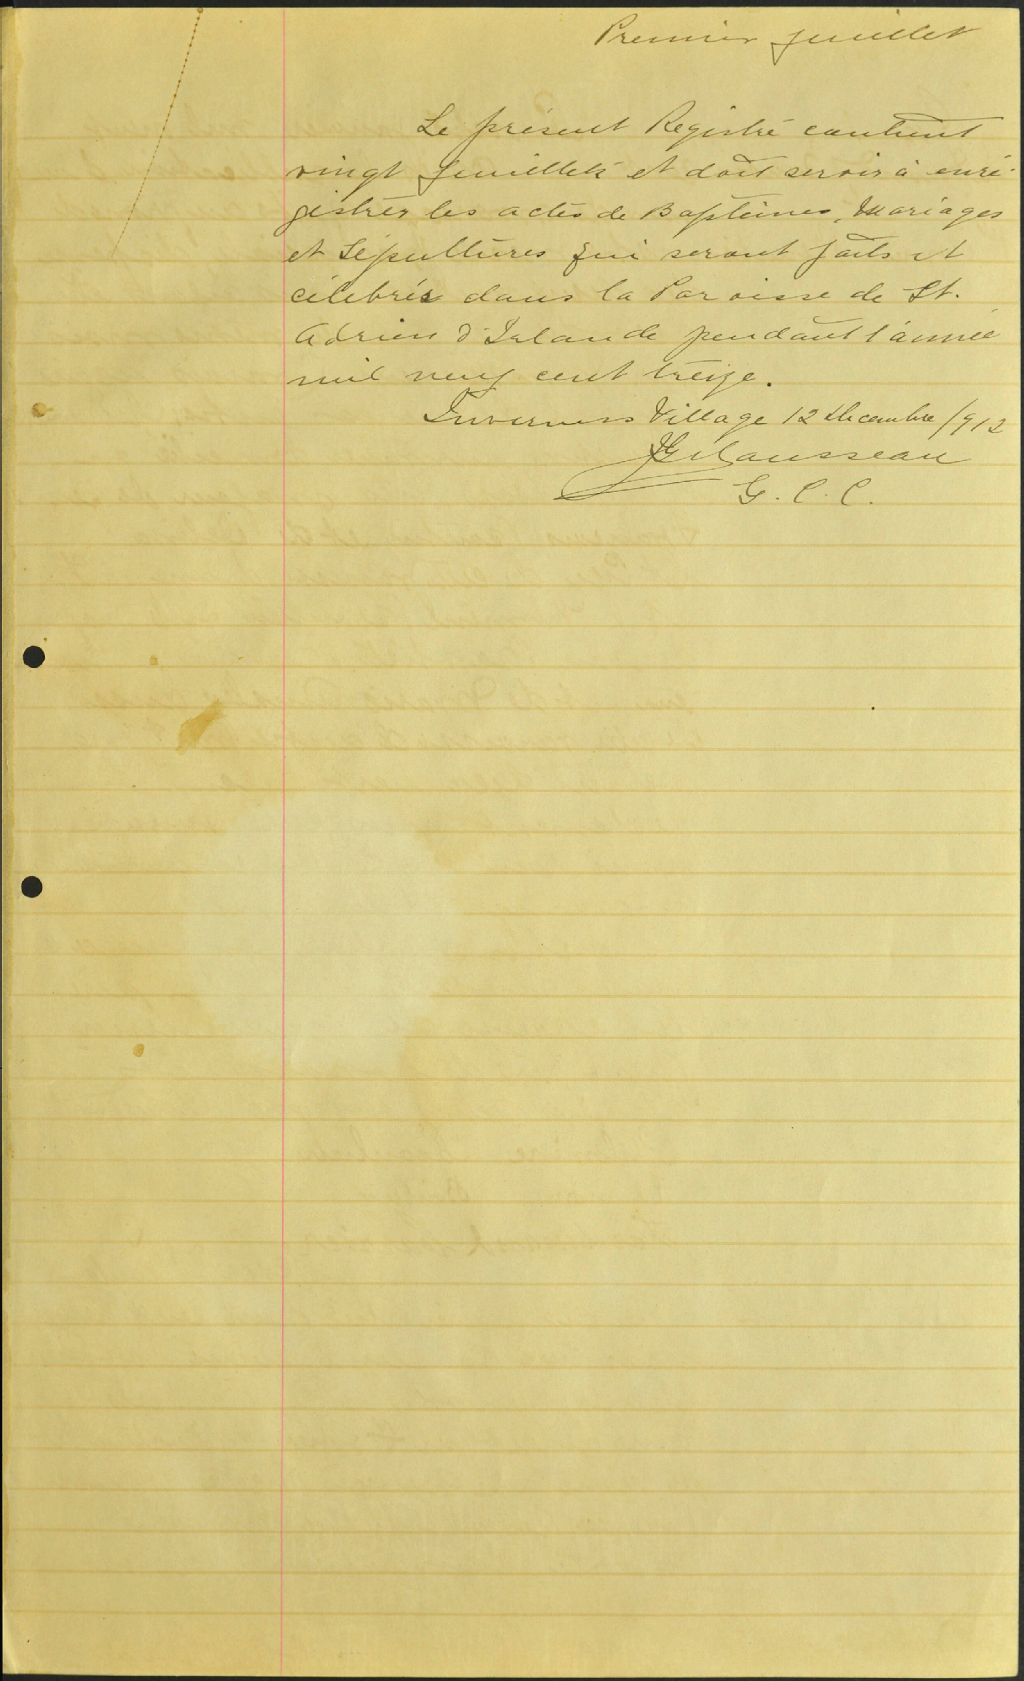 Premier feuillet
Le présent Registre contient
vingt feuillets et doit servir à enré-
gistrer les actes de Baptêmes, Mariages
et Sépultures qui seront faits et
célébrés dans la Paroisse de St.
Adrien d'Irlande pendant l'année
mil neuf cent treize.
Inverness Village 12 Décembre 1912
Rousseau
G. C. C.